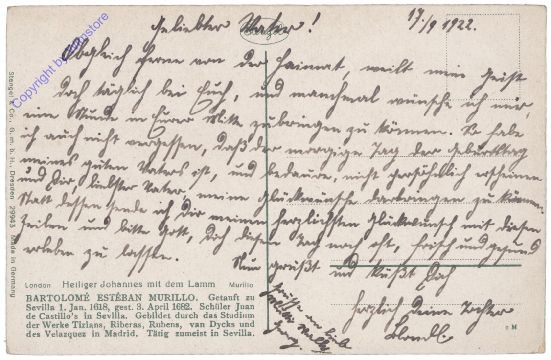 17./9 1922.
Geliebter Vater!
Obgleich ferne von der Heimat, weilt mein Geist
doch täglich bei Euch, und manchmal wünsche ich mir,
eine Stunde in Eurer Mitte zubringen zu können. So habe
ich auch nicht vergessen, daß der morgige Tag der Geburtstag
meines guten Vaters ist, und bedaure, nicht persönlich erscheinen
und Dir, liebster Vater meine Glückwünsche darbringen zu können.
Statt dessen sende ich Dir meinen herzlichsten Glückwunsch mit diesen
Zeilen und bitte Gott, Dich diesen Tag noch oft, frisch und gesund
erleben zu lassen.
Nun grüßt und küßt Dich
herzlich Deine Tochter
London Heiliger Johannes mit dem Lamm Murillo
BARTOLOMÉ ESTÉBAN MURILLO. Getauft zu
Sevilla 1. Jan. 1618, gest. 3. April 1682. Schüler Juan
de Castillo's in Sevilla. Gebildet durch das Studium
der Werke Tizians, Riberas, Rubens, van Dycks und
des Velazquez in Madrid. Tätig zumeist in Sevilla.
Stengel & Co., G. m. b. H., Dresden 29943 Made in Germany
Copyright by